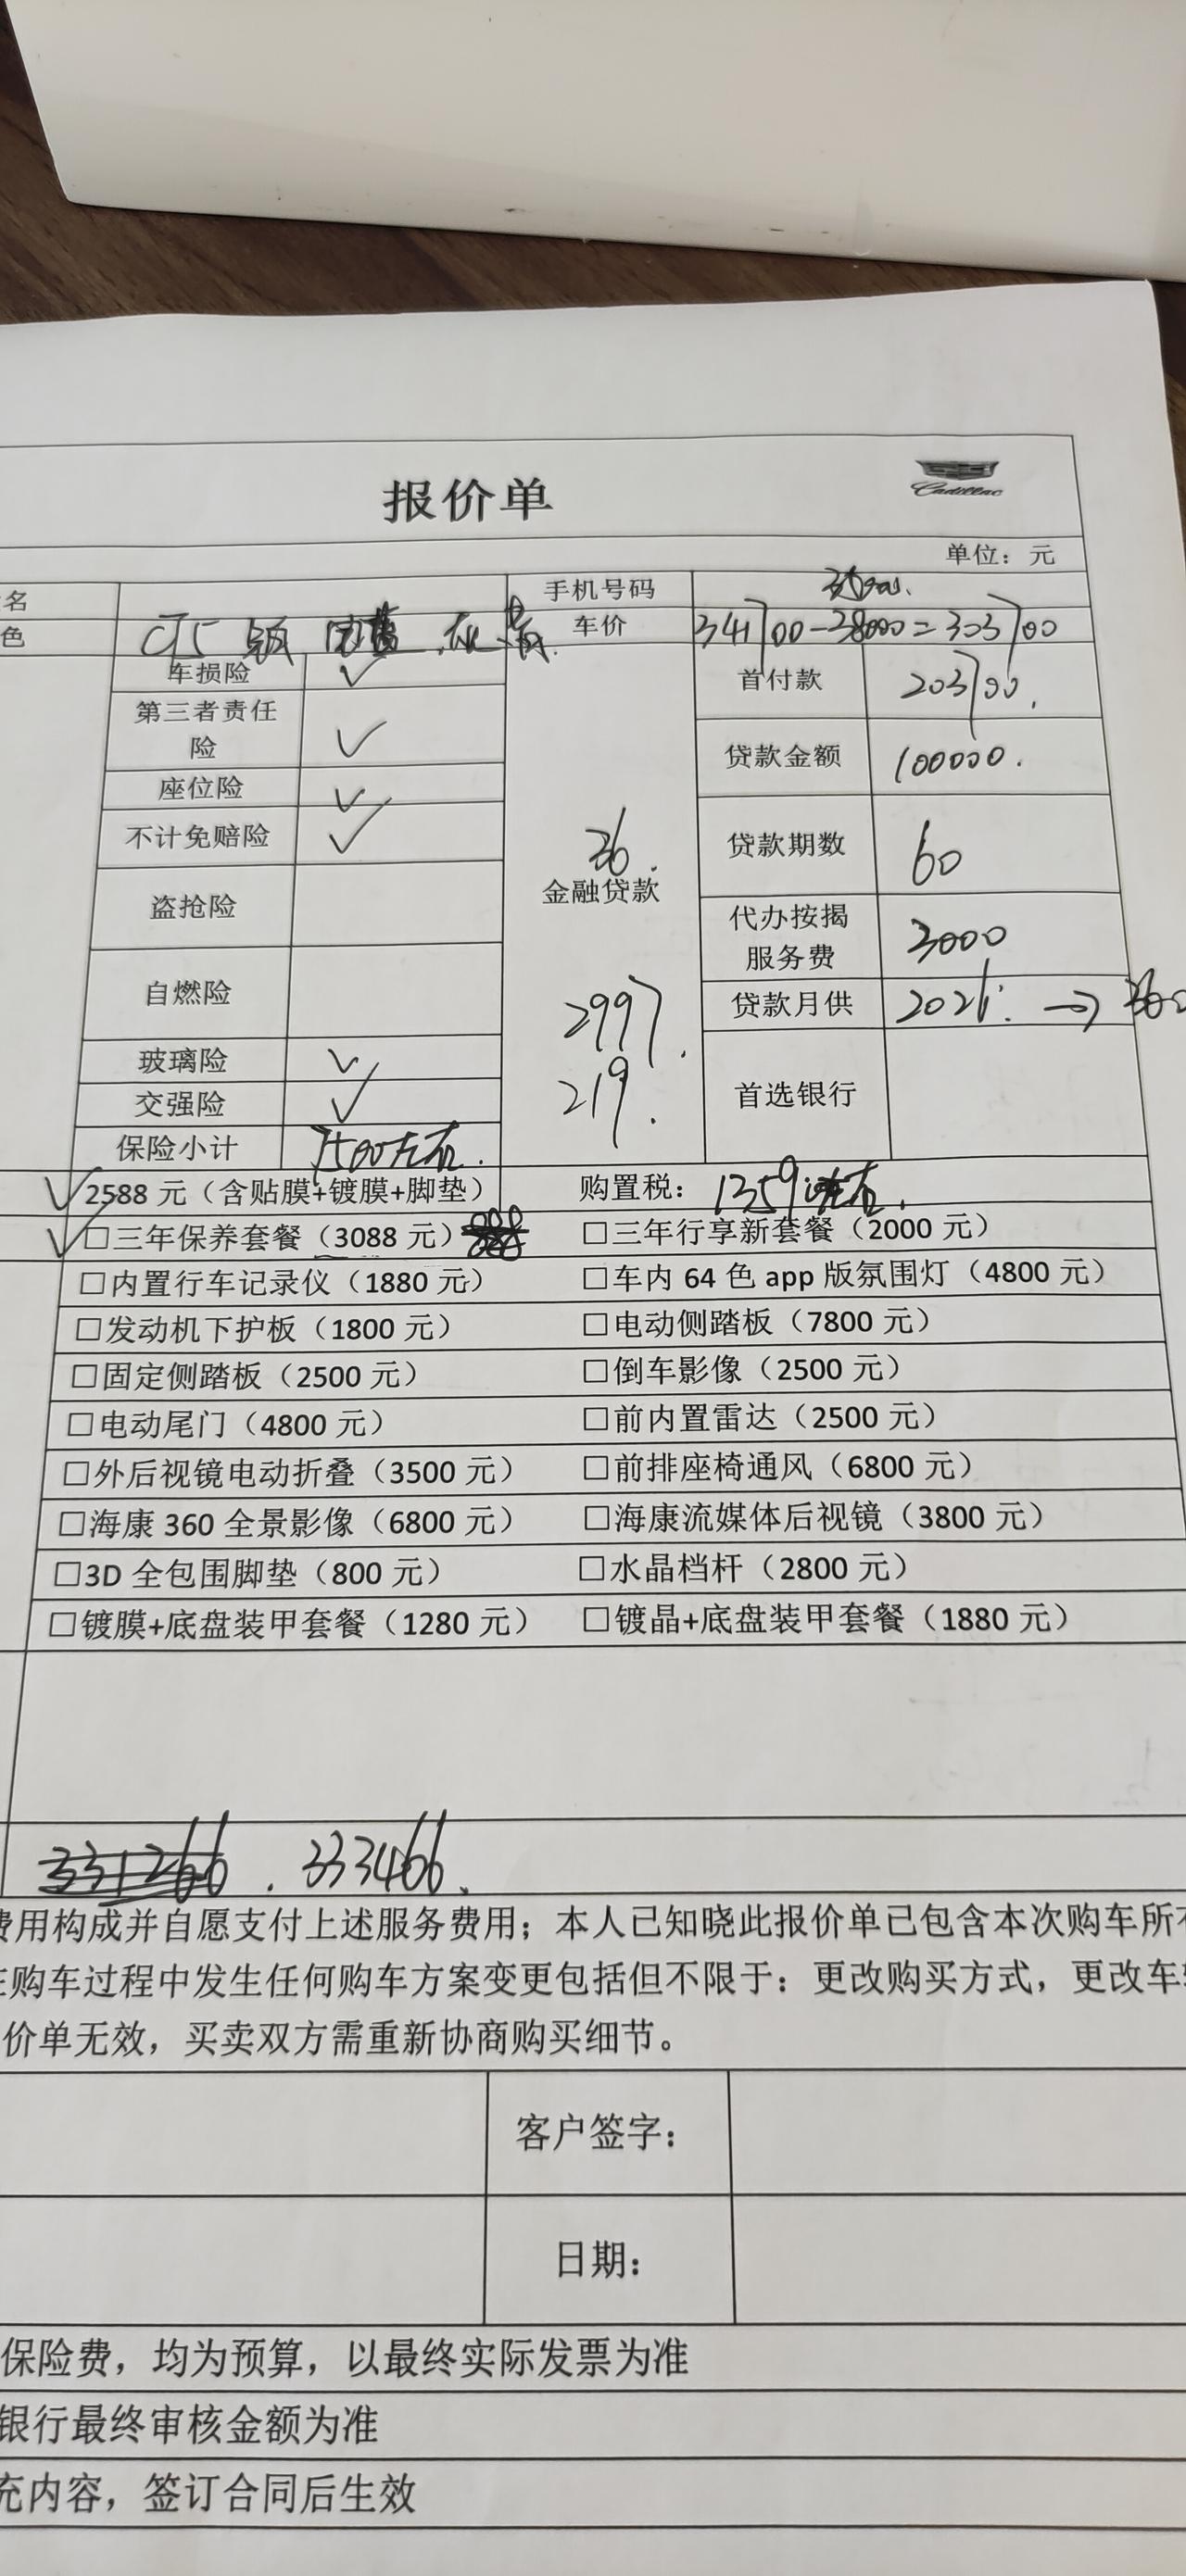 报价单
Cadillac
单位：元
名
手机号码
色
CT5
车价
341700-38000=303700
车损险 ✓
首付款
203700.
第三者责任险 ✓
贷款金额
100000.
座位险 ✓
不计免赔险 ✓
36.
金融贷款
贷款期数
60
盗抢险
代办按揭服务费
3000
自燃险
2997.
贷款月供
2026. →
玻璃险 ✓
219.
首选银行
交强险 ✓
保险小计
7500左右.
✓2588 元（含贴膜+镀膜+脚垫）
购置税：
✓□三年保养套餐（3088 元）
□三年行享新套餐（2000 元）
□内置行车记录仪（1880 元）
□车内 64 色 app 版氛围灯（4800 元）
□发动机下护板（1800 元）
□电动侧踏板（7800 元）
□固定侧踏板（2500 元）
□倒车影像（2500 元）
□电动尾门（4800 元）
□前内置雷达（2500 元）
□外后视镜电动折叠（3500 元）
□前排座椅通风（6800 元）
□海康 360 全景影像（6800 元）
□海康流媒体后视镜（3800 元）
□3D 全包围脚垫（800 元）
□水晶档杆（2800 元）
□镀膜+底盘装甲套餐（1280 元）
□镀晶+底盘装甲套餐（1880 元）
331266. 333466.
费用构成并自愿支付上述服务费用；本人已知晓此报价单已包含本次购车所有
在购车过程中发生任何购车方案变更包括但不限于：更改购买方式，更改车
价单无效，买卖双方需重新协商购买细节。
客户签字：
日期：
保险费，均为预算，以最终实际发票为准
银行最终审核金额为准
充内容，签订合同后生效